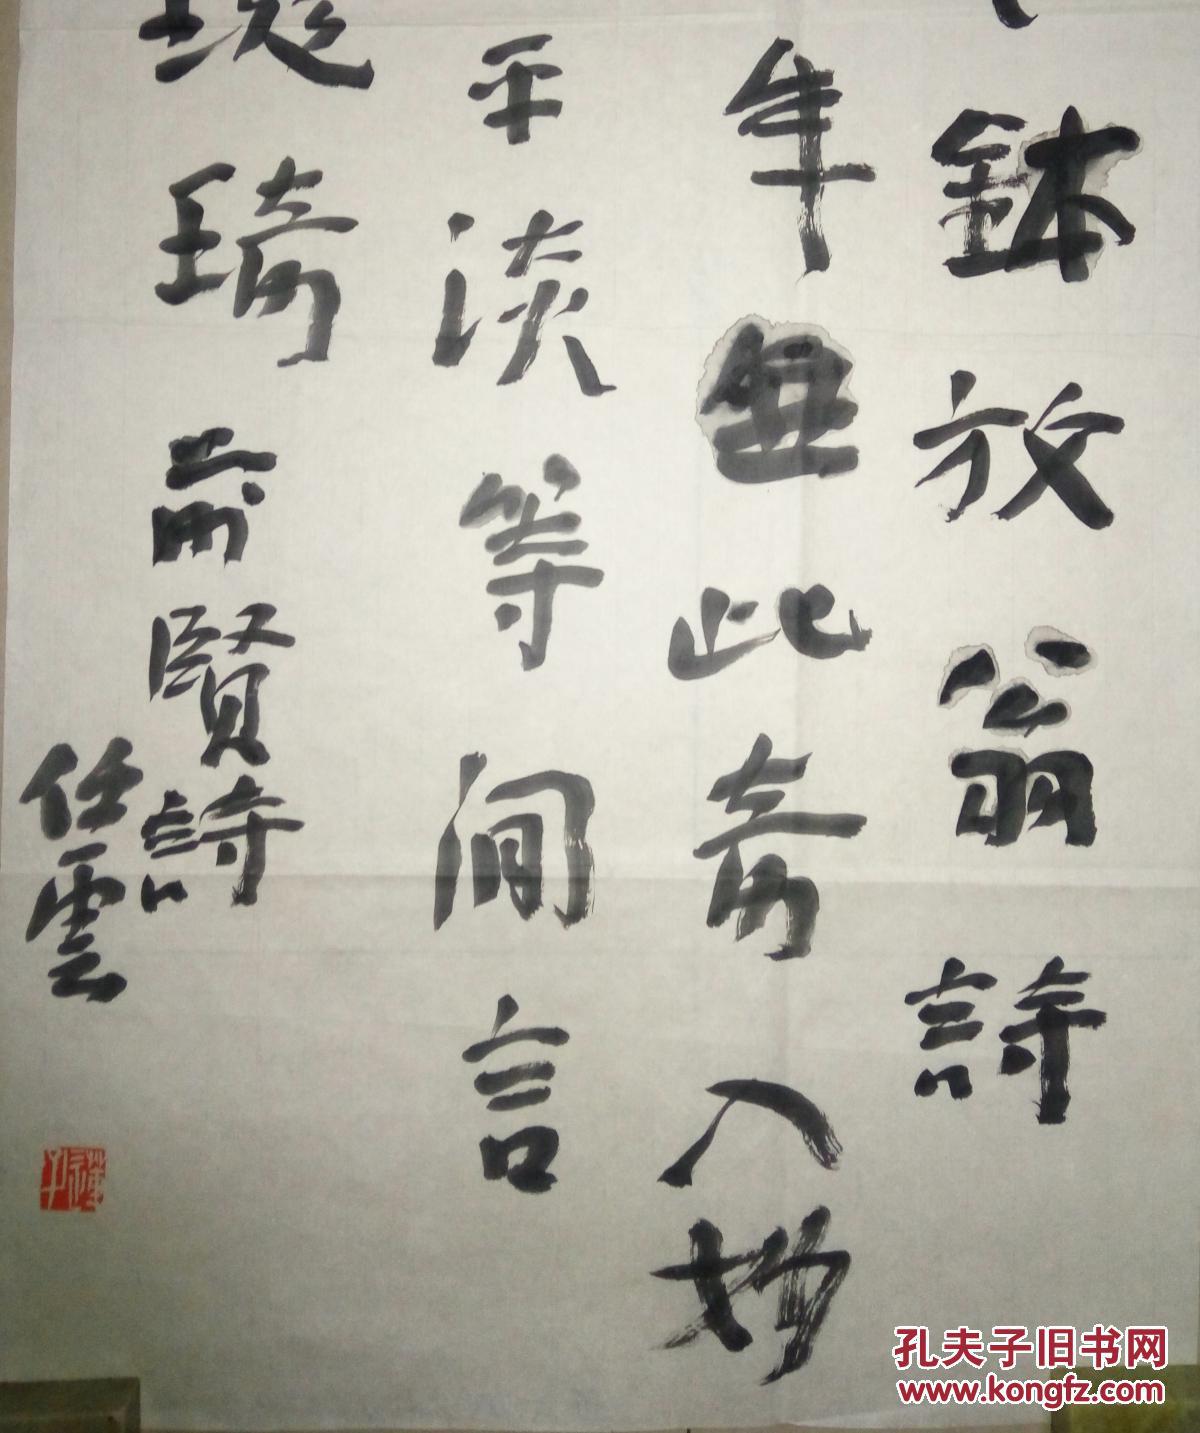 鉢放翁詩
年無此奇入妙
平淡等间言
琦前賢詩
任雲
孔夫子旧书网
www.kongfz.com